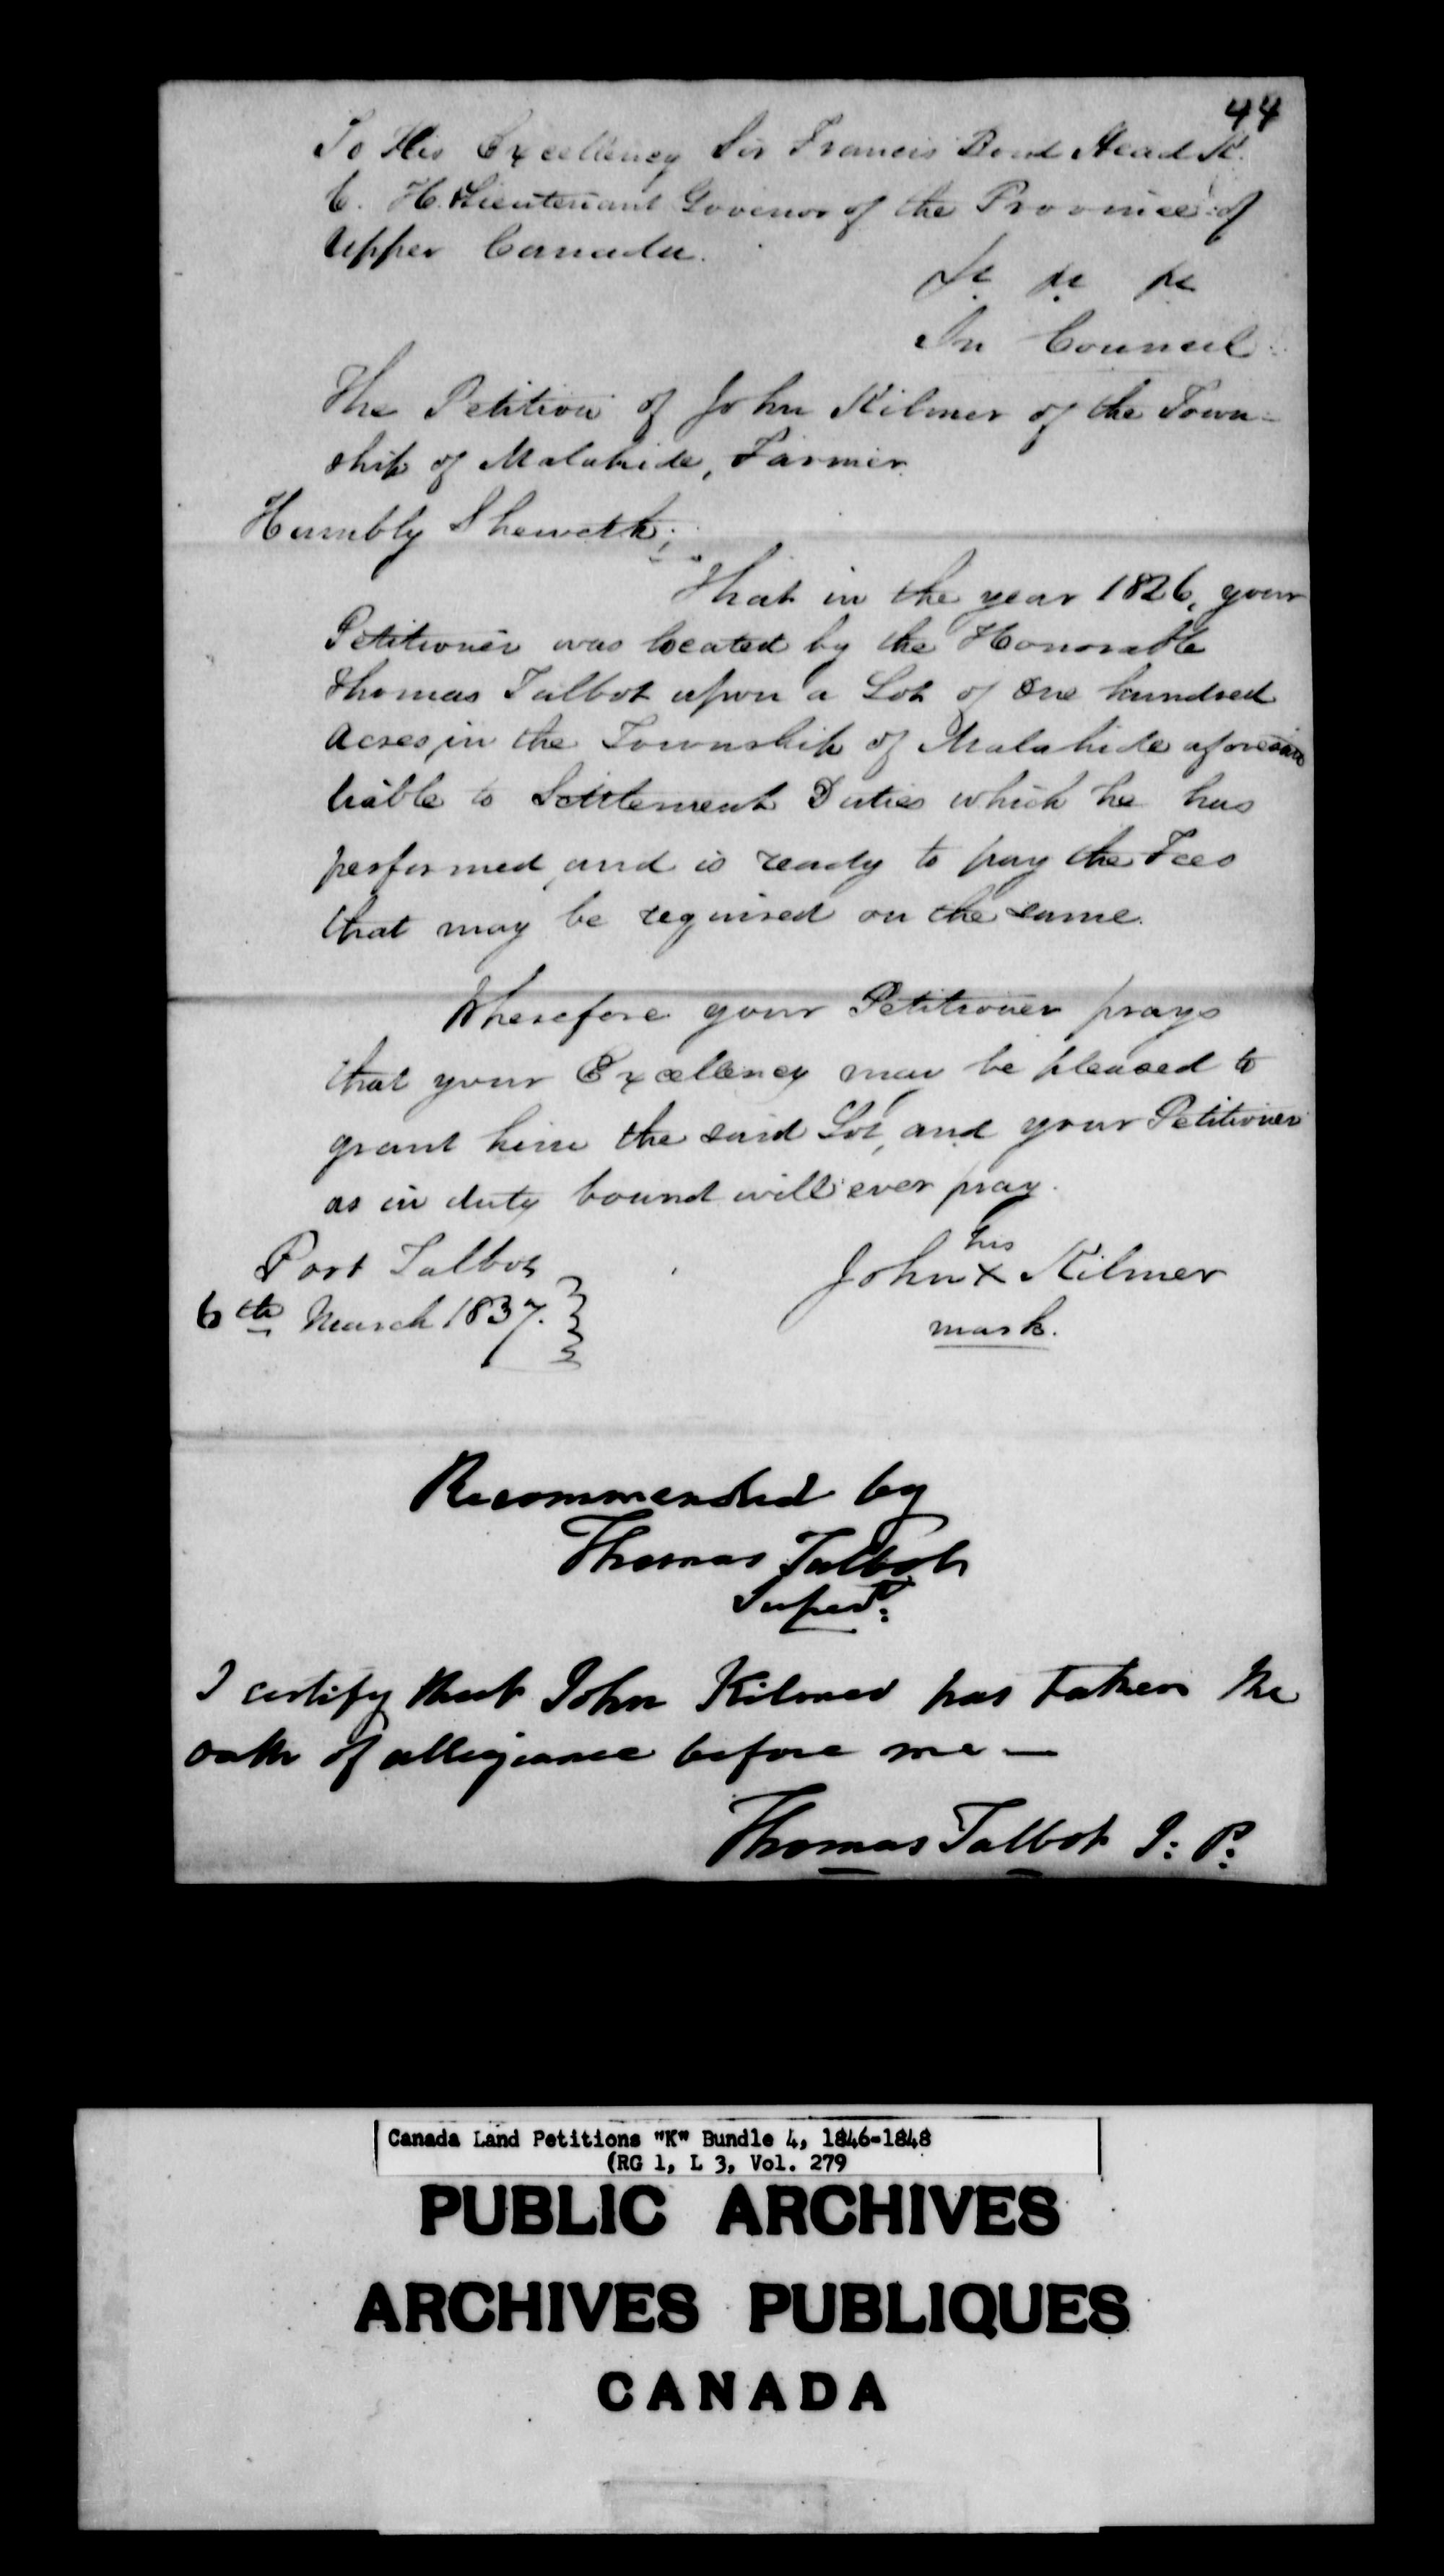 44
To His Excellency Sir Francis Bond Head K.
C. H. Lieutenant Govenor of the Province of
Upper Canada.
&c &c &c
In Council
The Petition of John Kilmer of the Town-
ship of Malahide, Farmer.
Humbly Sheweth;
That in the year 1826, your
Petitioner was located by the Honorable
Thomas Talbot upon a Lot of One hundred
Acres, in the Township of Malahide aforesaid
liable to Settlement Duties which he has
performed, and is ready to pay the Fees
that may be required on the same.
Wherefore your Petitioner prays
that your Excellency may be pleased to
grant him the said Lot, and your Petitioner
as in duty bound will ever pray.
Port Talbot
6th March 1837.
his
John X Kilmer
mark.
Recommended by
Thomas Talbot
Superd:
I certify that John Kilmer has taken the
oath of allegiance before me —
Thomas Talbot J: P:
Canada Land Petitions "K" Bundle 4, 1846-1848
(RG 1, L 3, Vol. 279
PUBLIC ARCHIVES
ARCHIVES PUBLIQUES
CANADA